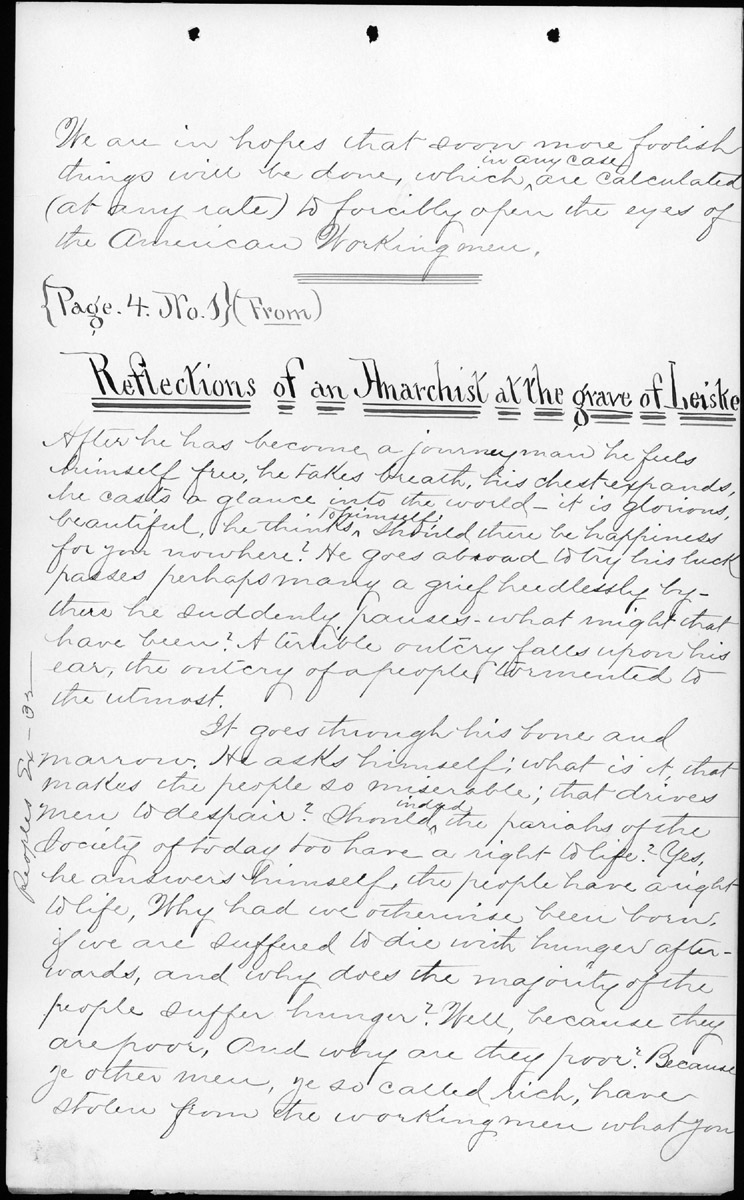 We are in hopes that soon more foolish
things will be done, which in any case, are calculated
(at any rate) to forcibly open the eyes of
the American Workingmen.
{Page. 4. No. 1} (From)
Reflections of an Anarchist at the grave of Leiske
After he has become a journeyman he feels
himself free, he takes breath, his chest expands,
he casts a glance into the world – it is glorious,
beautiful, he thinks to himself; should there be happiness
for you nowhere? He goes abroad to try his luck
passes perhaps many a grief heedlessly by –
there he suddenly pauses – what might that
have been? A terrible outcry falls upon his
ear, the outcry of a people tormented to
the utmost.
It goes through his bone and
marrow. He asks himself; what is it, that
makes the people so miserable; that drives
men to despair? Should indeed the pariahs of the
Society of today too have a right to life? Yes,
he answers himself, the people have a right
to life, Why had we otherwise been born,
if we are suffered to die with hunger after-
wards, and why does the majority of the
people suffer hunger? Well, because they
are poor, And why are they poor? Because
ye other men, ye so called rich, have
stolen from the workingmen what you
Peoples Ex –